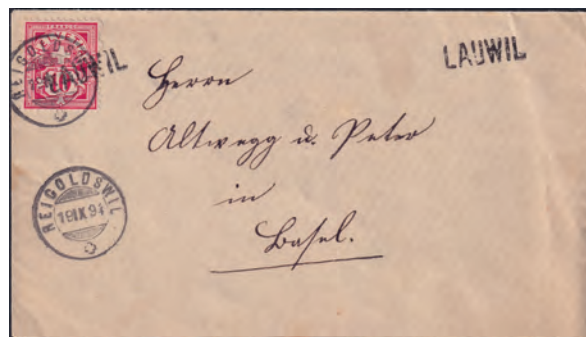 REIGOLDSWIL
LAUWIL
10
LAUWIL
Herrn
Altwegg u. Peter
in
Basel.
REIGOLDSWIL
19 IX 94